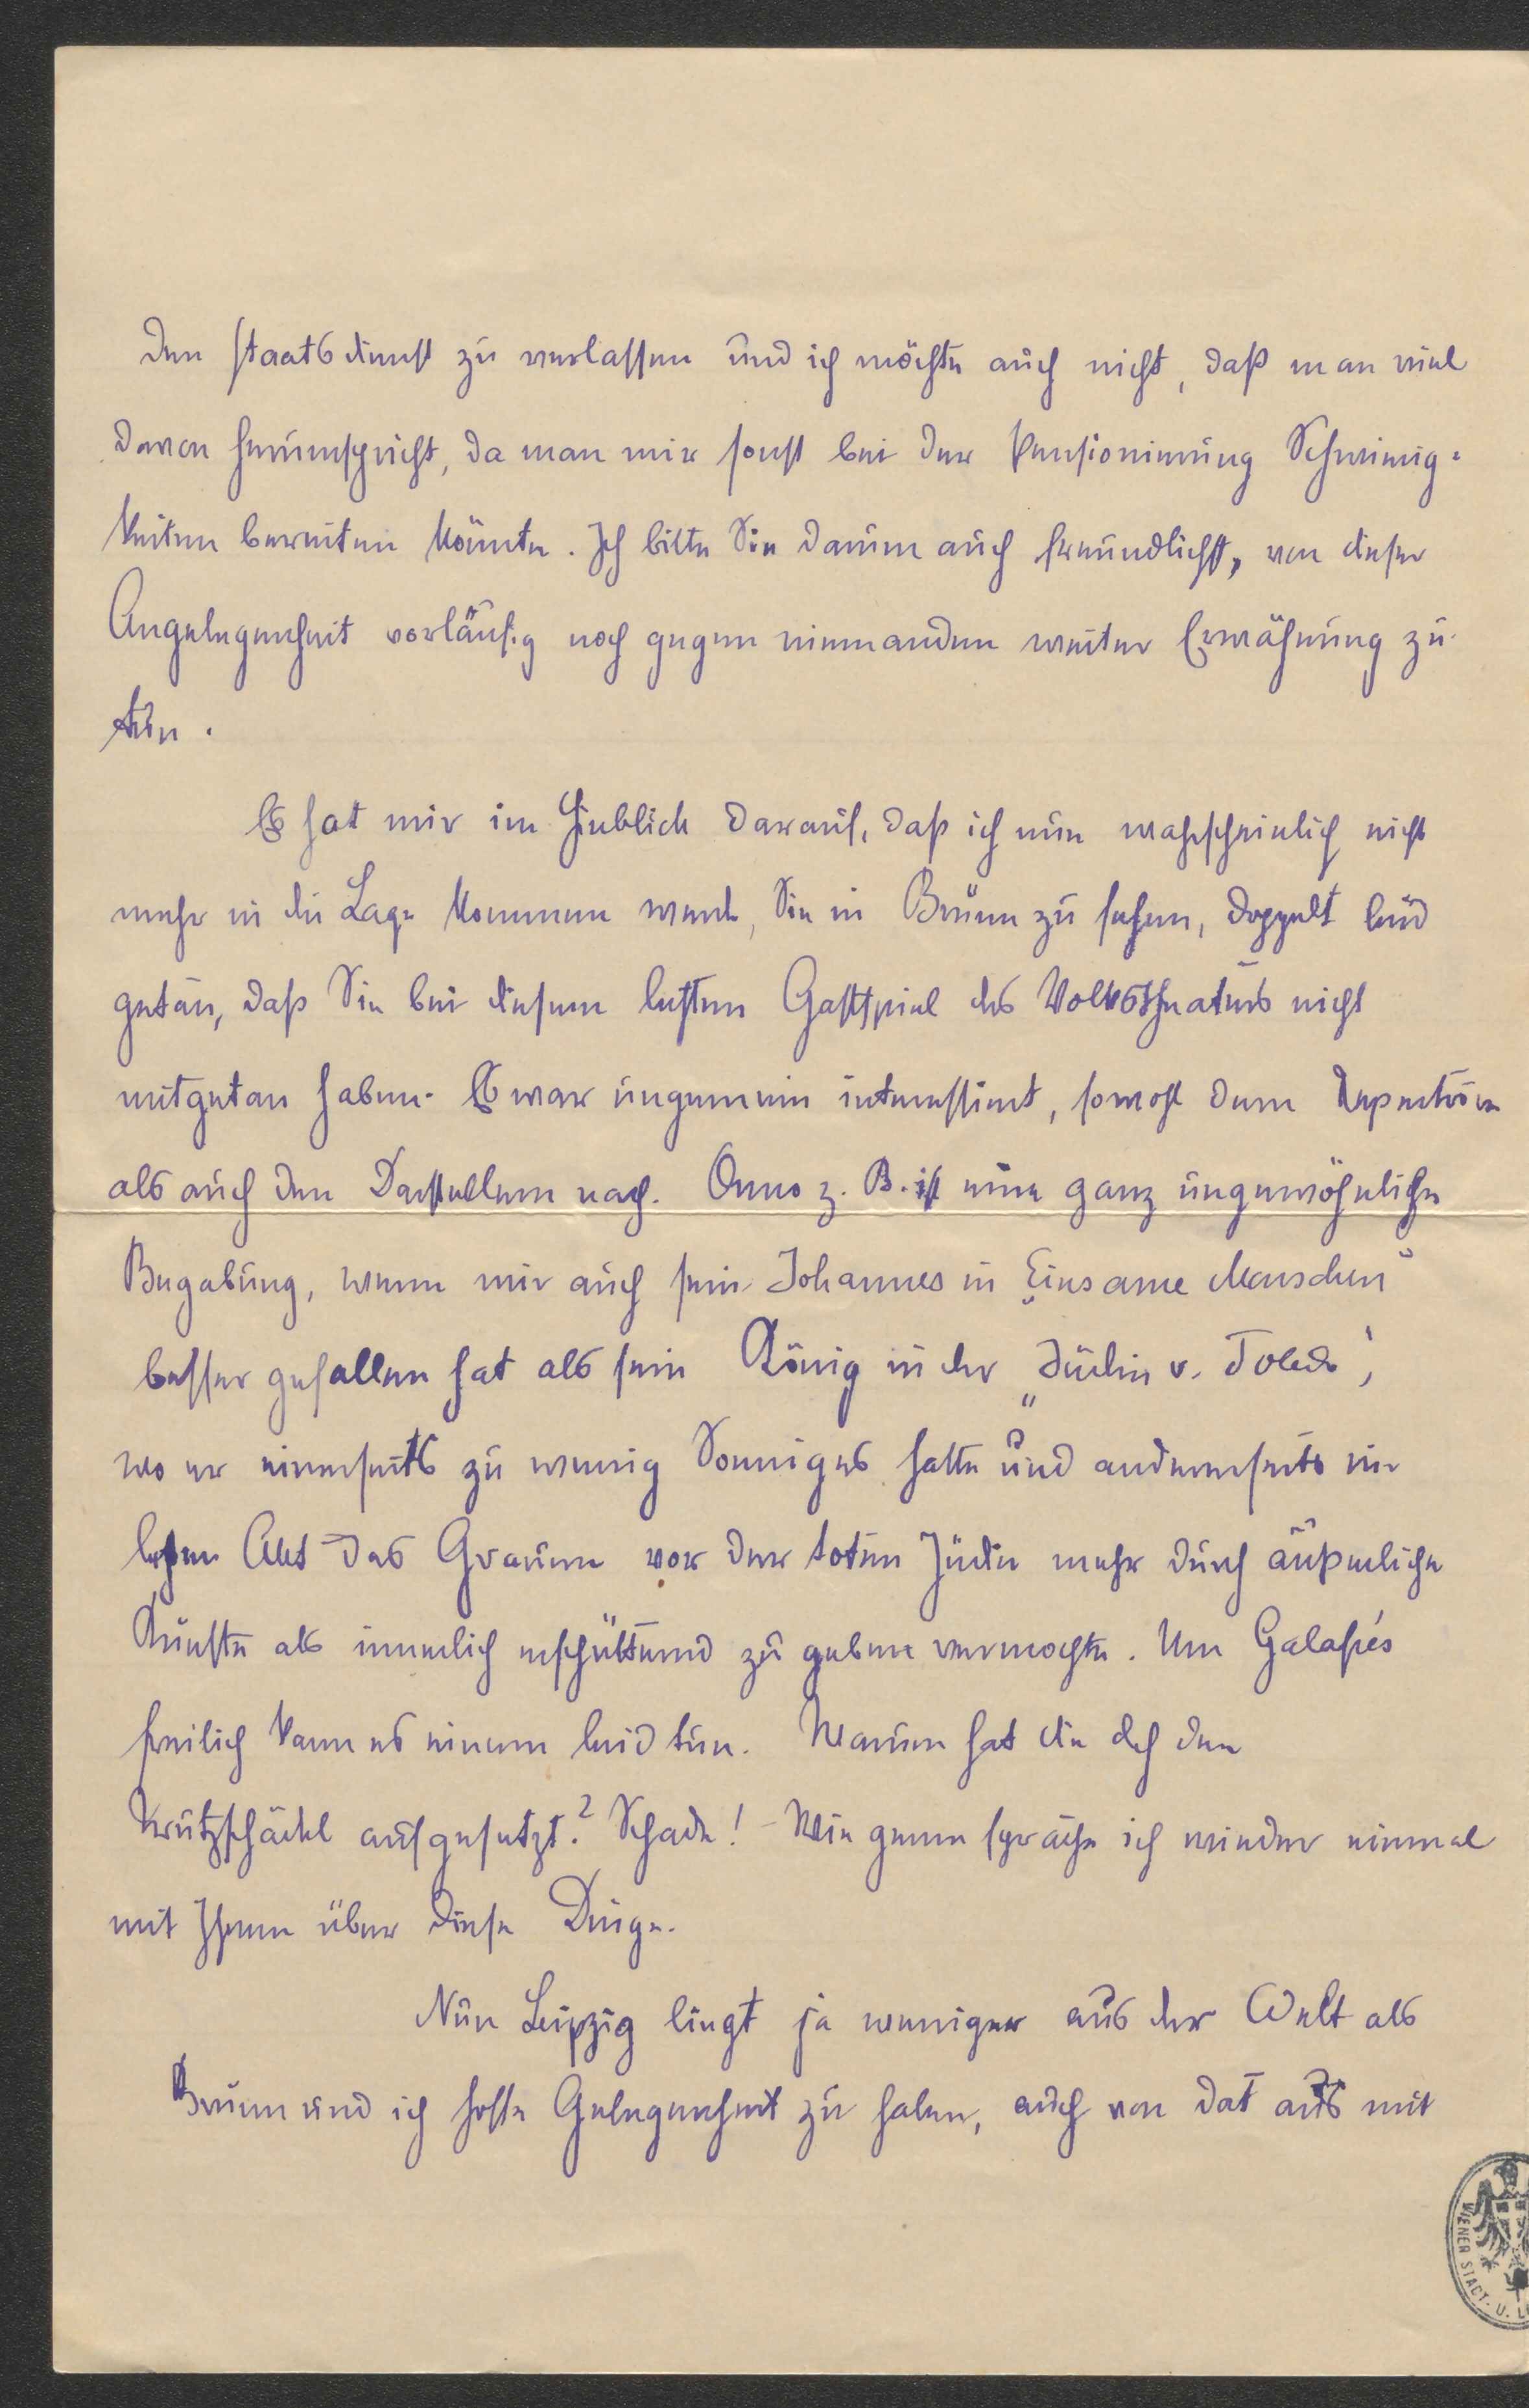 den Staatsdienst zu verlassen und ich möchte auch nicht, daß man viel
davon herumspricht, da man mir sonst bei der Pensionierung Schwierig-
keiten bereiten könnte. Ich bitte Sie darum auch freundlichst, von dieser
Angelegenheit vorläufig noch gegen niemanden weiter Erwähnung zu
tun.
Es hat mir im Hinblick darauf, daß ich nun wahrscheinlich nicht
mehr in die Lage kommen werde, Sie in Brünn zu sehen, doppelt leid
getan, daß Sie bei diesem letzten Gastspiel des Volkstheaters nicht
mitgetan haben. Es war ungemein interessant, sowohl dem Repertoire
als auch den Darstellern nach. Onno z. B. ist eine ganz ungewöhnliche
Begabung, wenn mir auch sein Johannes in „Einsame Menschen"
besser gefallen hat als sein König in der „Jüdin v. Toledo",
wo er einerseits zu wenig Sonniges hatte und andererseits im
letzten Akt das Grauen vor der toten Jüdin mehr durch äußerliche
Künste als innerlich erschütternd zu geben vermochte. Um Galafrés
freilich kann es einem leid tun. Warum hat die doch den
Trutzschädel aufgesetzt? Schade! – Wie gerne spräche ich wieder einmal
mit Ihnen über diese Dinge.
Nun Leipzig liegt ja weniger aus der Welt als
Brünn und ich hoffe Gelegenheit zu haben, auch von dort aus mit
WIENER STADT- U. L